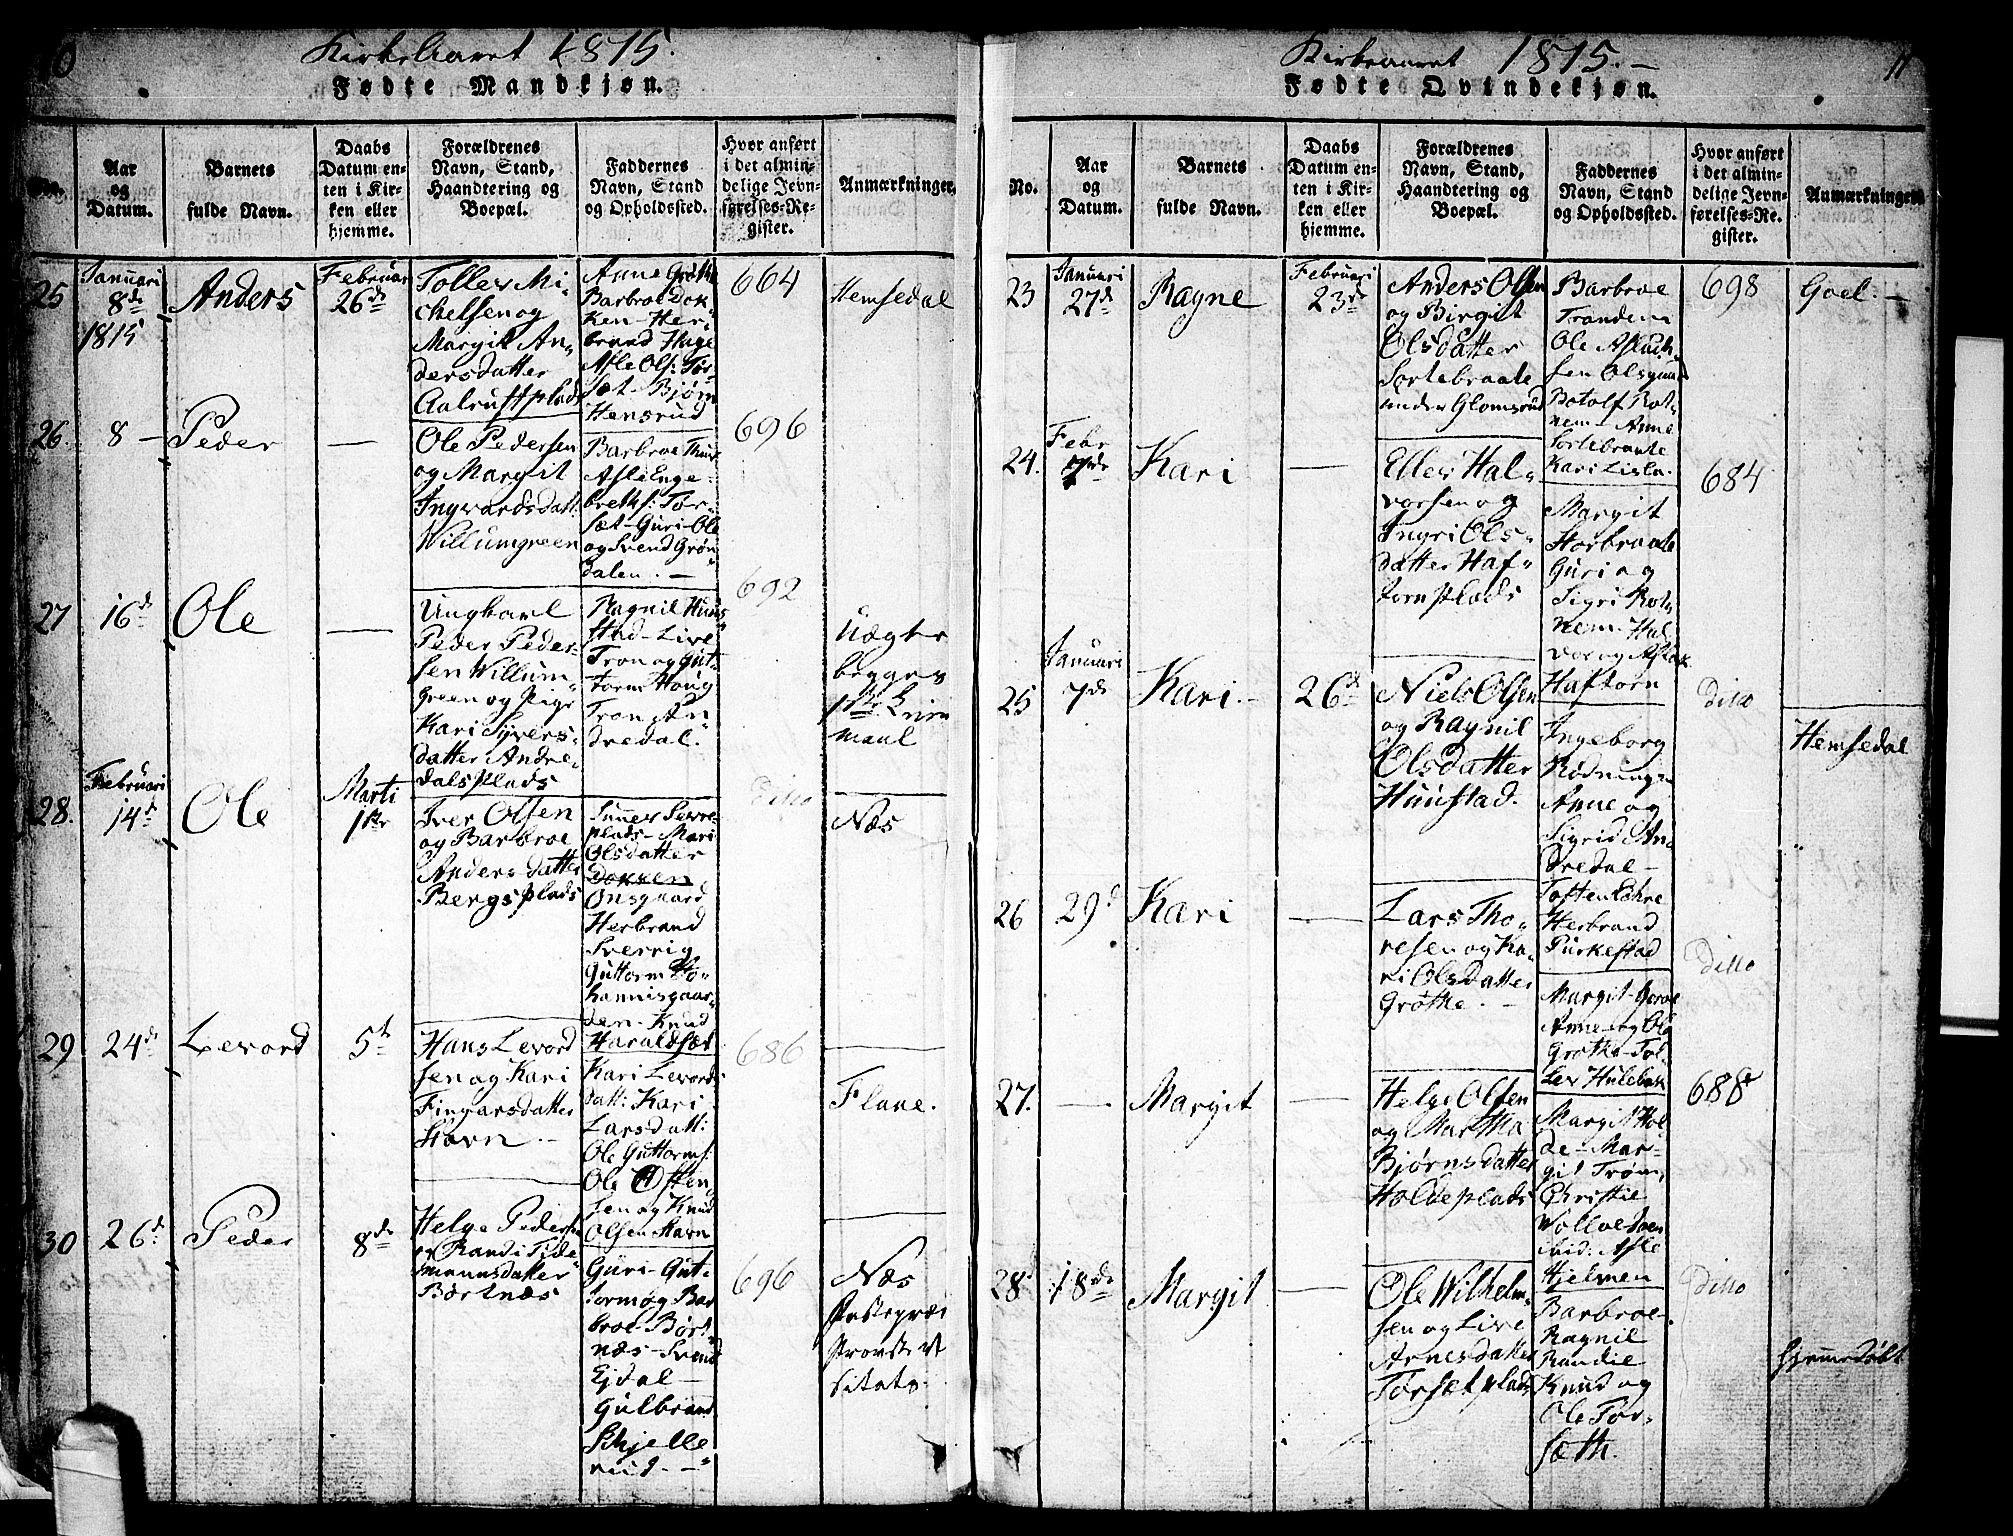 10
Kirkeaaret 1815.
Fødte Mandkjøn.
No.
Aar
og
Datum.
Barnets
fulde Navn.
Daabs
Datum en-
ten i Kir-
ken eller
hjemme.
Forældrenes
Navn, Stand,
Haandtering og
Boepæl.
Faddernes
Navn, Stand
og Opholdssted.
Hvor anført
i det almin-
delige Jevn-
førelses-Re-
gister.
Anmærkninger.
25
Januari
8de
1815
Anders
Februar
26de
Tollev Mi-
chelsen og
Margit An-
dersdatter
Aalrustplads
Anne Grøthe
Barbroe Dok-
ken - Her-
brand Hage
Asle Ols: Tor-
sæt - Bjørn
Hensrud
664
Hemsedal
26.
8 -
Peder
—
Ole Pedersen
og Margit
Ingvardsdatt:
Willumgreen
Barbroe
Asle Enge-
brethss: Tor-
sæt - Guri - Ole
og Svend Grøn-
dalen. —
696
27
16de
Ole
—
Ungkarl
Peder Peder-
sen Willum-
green og Pige
Kari Syvers-
datter Andre-
dalsplads
Ragnil Huus-
stad - Live
Tron og Gut-
torm Houg
Tron An-
dredal.
692
Uægte
begges
1ste Leier-
maal
28.
Februari
14de
Ole
Marti
1ste
Iver Olsen
og Barbroe
Andersdatter
Bergsplads
plads - Mari
Olsdatter
Dokken
Onsgaard
Herbrand
Sverrig
Guttorm Jo-
hannisgaar-
den - Knud
Haraldset
ditto
Næs
29
24de
Levord
5te
Hans Levord
sen og Kari
Fingarsdatter
Kari Levords-
datt: Kari
Larsdatt:
Ole Guttorms:
Ole Osten
sen og Knud
Olsen Stavn
686
Flaae.
30
26de
Peder
8de
Helge Peders
og Randi Tide-
mannsdatter
Børtnæs
Guri - Gut-
torm og Bar
broe - Børt-
næs - Svend
Ejdal —
Gulbrand
Skjelle
rud. —
696
Næs
11
Kirkeaaret 1815. —
Fødte Qvindekjøn.
No.
Aar
og
Datum.
Barnets
fulde Navn.
Daabs
Datum en-
ten i Kir-
ken eller
hjemme.
Forældrenes
Navn, Stand,
Haandtering og
Boepæl.
Faddernes
Navn, Stand
og Opholdssted.
Hvor anført
i det almin-
delige Jevn-
førelses-Re-
gister.
Anmærkninger.
23
Januari
27de
Ragne
Februari
23de
Anders Olsen
og Birgit
Olsdatter
Sortebraate
under Glomsrud
Barbroe
Trandem
Ole Aslach-
sen Olsgaard
Botolf Rot-
nem - Anne
Sortebraate
Kari Lislu.
698
Goel. —
24.
Febr
7de
Kari
—
Ellev Hal-
vorsen og
Ingri Ols-
datter Haf-
tornplads
Margit
Storbraate
Guri og
Sigri Rot-
nem. Hal-
vor og Aslak
Haftorn
684
25
Januari
7de
Kari. —
26de
Niels Olsen
og Ragnil
Olsdatter
Huustad.
Ingeborg
Rødningen
Anne og
Sigrid An-
dredal —
Herbrand
Purkestad
ditto
Hemsedal
26
29de
Kari
—
Lars Tho-
resen og Ka-
ri Olsdatter
Grøthe. —
Margit
Anne og Ole
Grøthe - Tol-
lev Hulebak
ditto
27.
—
Margit
—
Helge Olsen
og Martha
Bjørnsdatter
Holdeplads
Margit Hol-
de - Mar-
git Trøm,
Christie
Asle
Hjelmen
688
28
18de
Margit
—
Ole Wilhelm-
sen og Live
Arnesdatter
Torsetplads
Barbroe -
Ragnil
Randie
Knud og
Ole Tor-
sæth.
ditto
hjemmedøbt